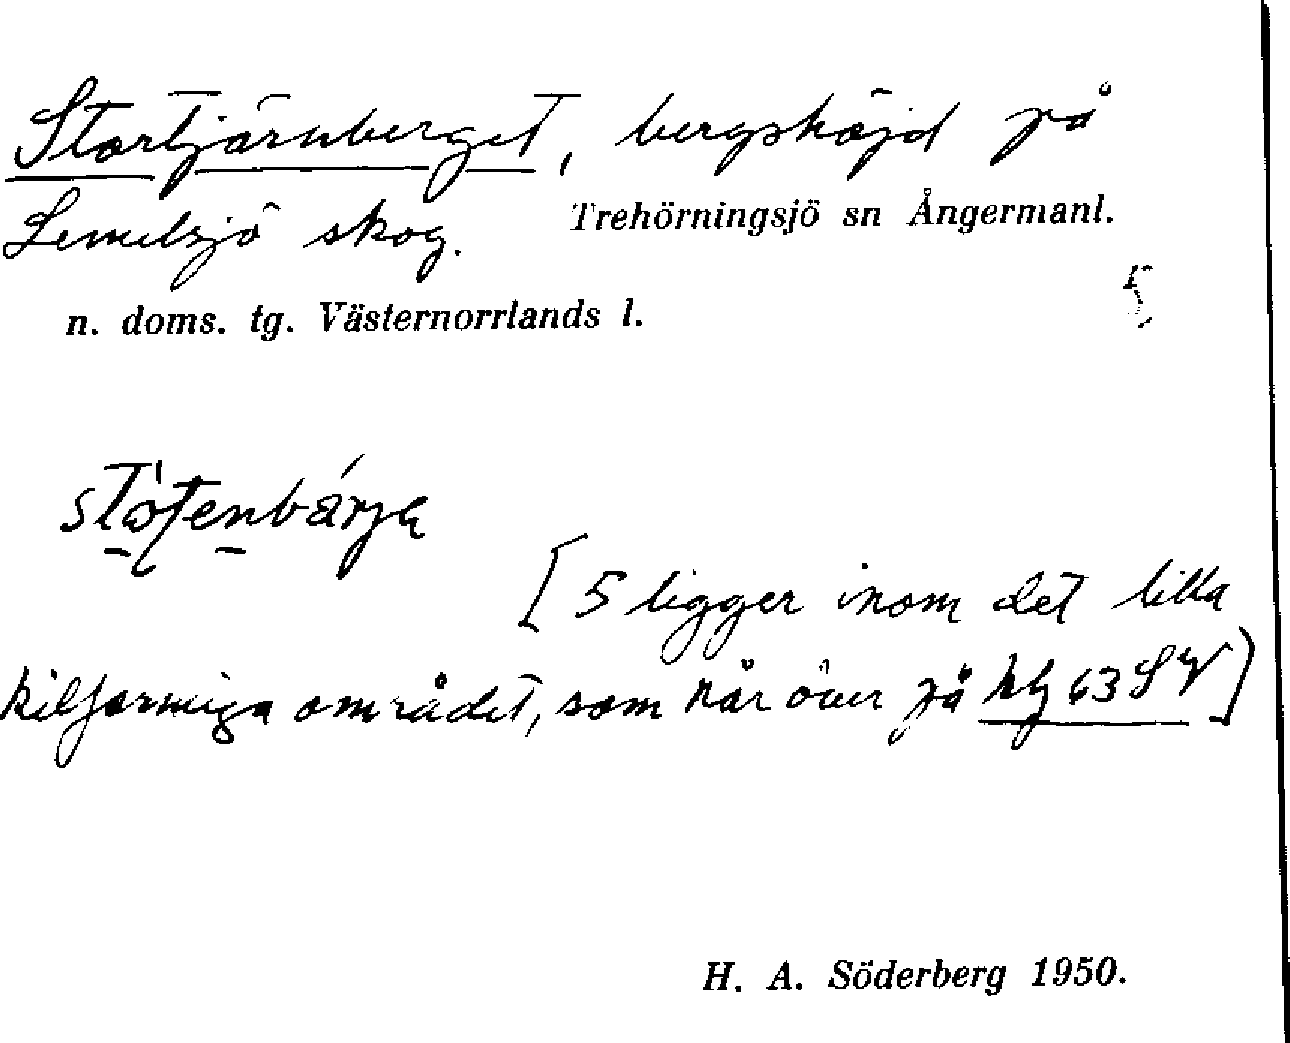 Stortjärnberget, bergshöjd på
Lemelsjö skog. Trehörningsjö sn Ångermanl.
5
n. doms. tg. Västernorrlands l.
[5 ligger inom det lilla
kilformiga området, som når över på kbl 63 SV]
H. A. Söderberg 1950.